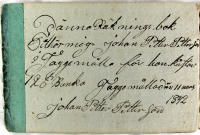 Dänna Räknings bok
tilhör mig Johan Petter Petter Son
i Taggemålla för
12 Banko Taggemålla den 11 mars
1842
Johan Petter Petter Son